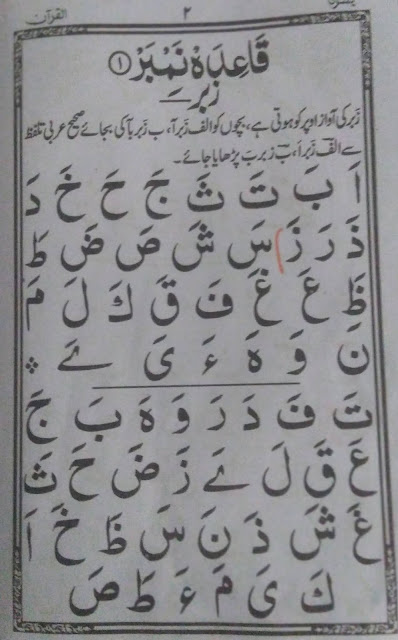 القرآن ۲ یسرنا
قَاعِدَہْ نَمْبَرْ ۱
زَبَر
زَبر کی آواز اوپر کو ہوتی ہے، بچوں کو الف زَبر آ، ب زَبر بآ کی بجائے صحیح عربی تلفظ
سے الف زَبر اَ، بَ زبر بَ پڑھایا جائے۔
اَ بَ تَ ثَ جَ حَ خَ دَ
ذَ رَ زَ سَ شَ صَ ضَ طَ
ظَ عَ غَ فَ قَ كَ لَ مَ
نَ وَ هَ ءَ یَ ےَ
تَ فَ دَ رَ وَ هَ بَ جَ
عَ قَ لَ ےَ زَ ضَ حَ ثَ
غَ شَ ذَ نَ سَ ظَ خَ اَ
كَ یَ مَ ءَ طَ صَ